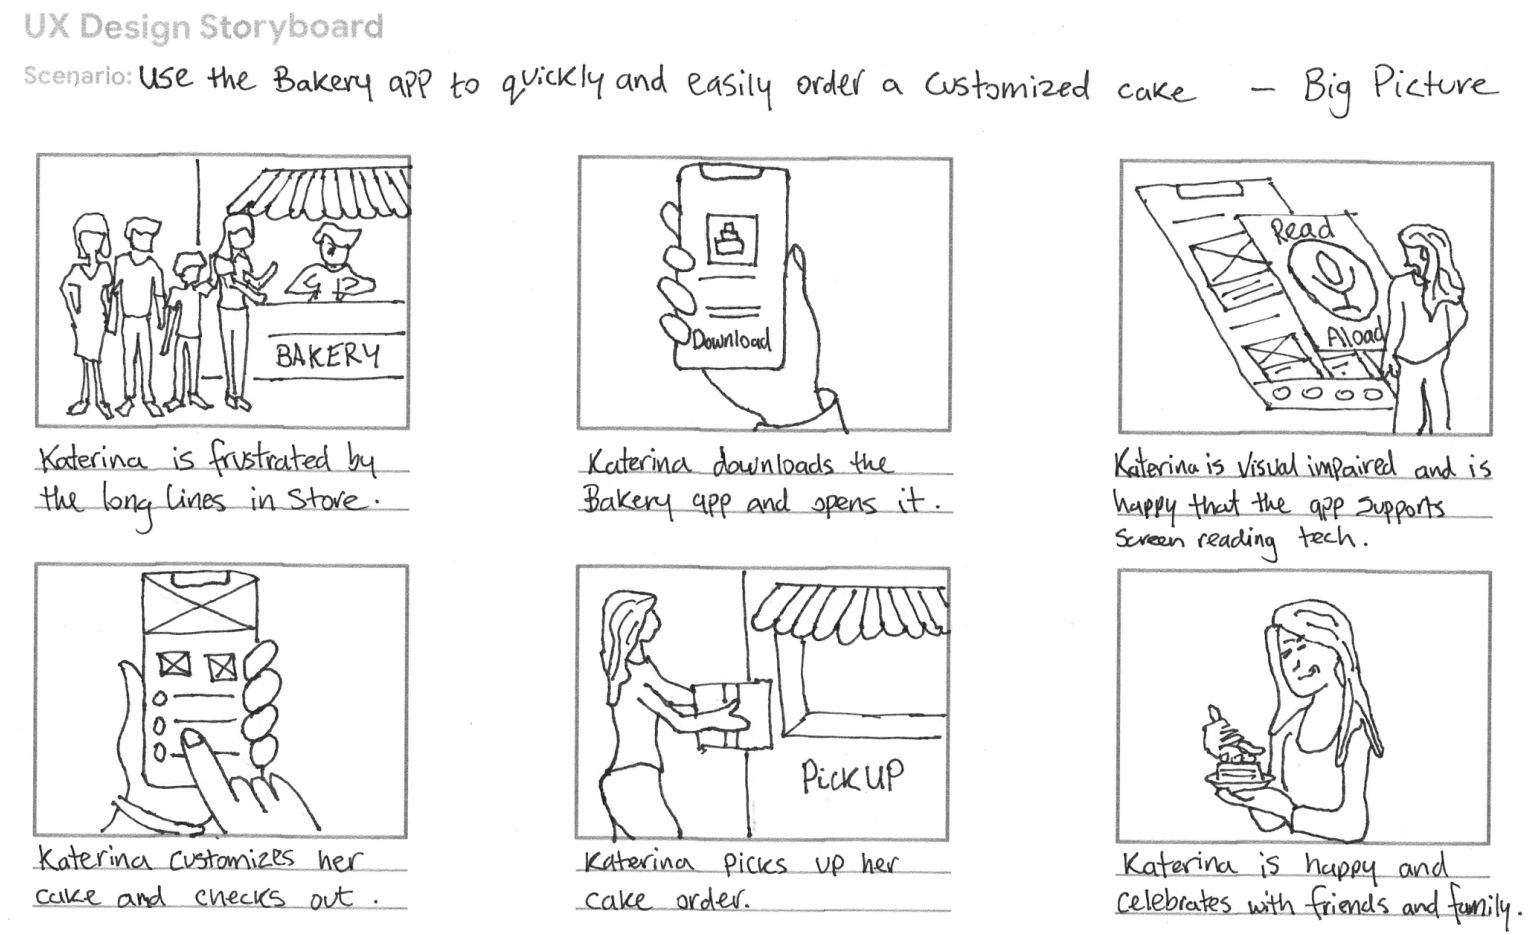 UX Design Storyboard
Scenario: Use the Bakery app to quickly and easily order a customized cake - Big Picture
BAKERY
Katerina is frustrated by
the long lines in store.
Download
Katerina downloads the
Bakery app and opens it.
Read
Aload
Katerina is visual impaired and is
happy that the app supports
screen reading tech.
Katerina customizes her
cake and checks out.
Pick UP
Katerina picks up her
cake order.
Katerina is happy and
celebrates with friends and family.